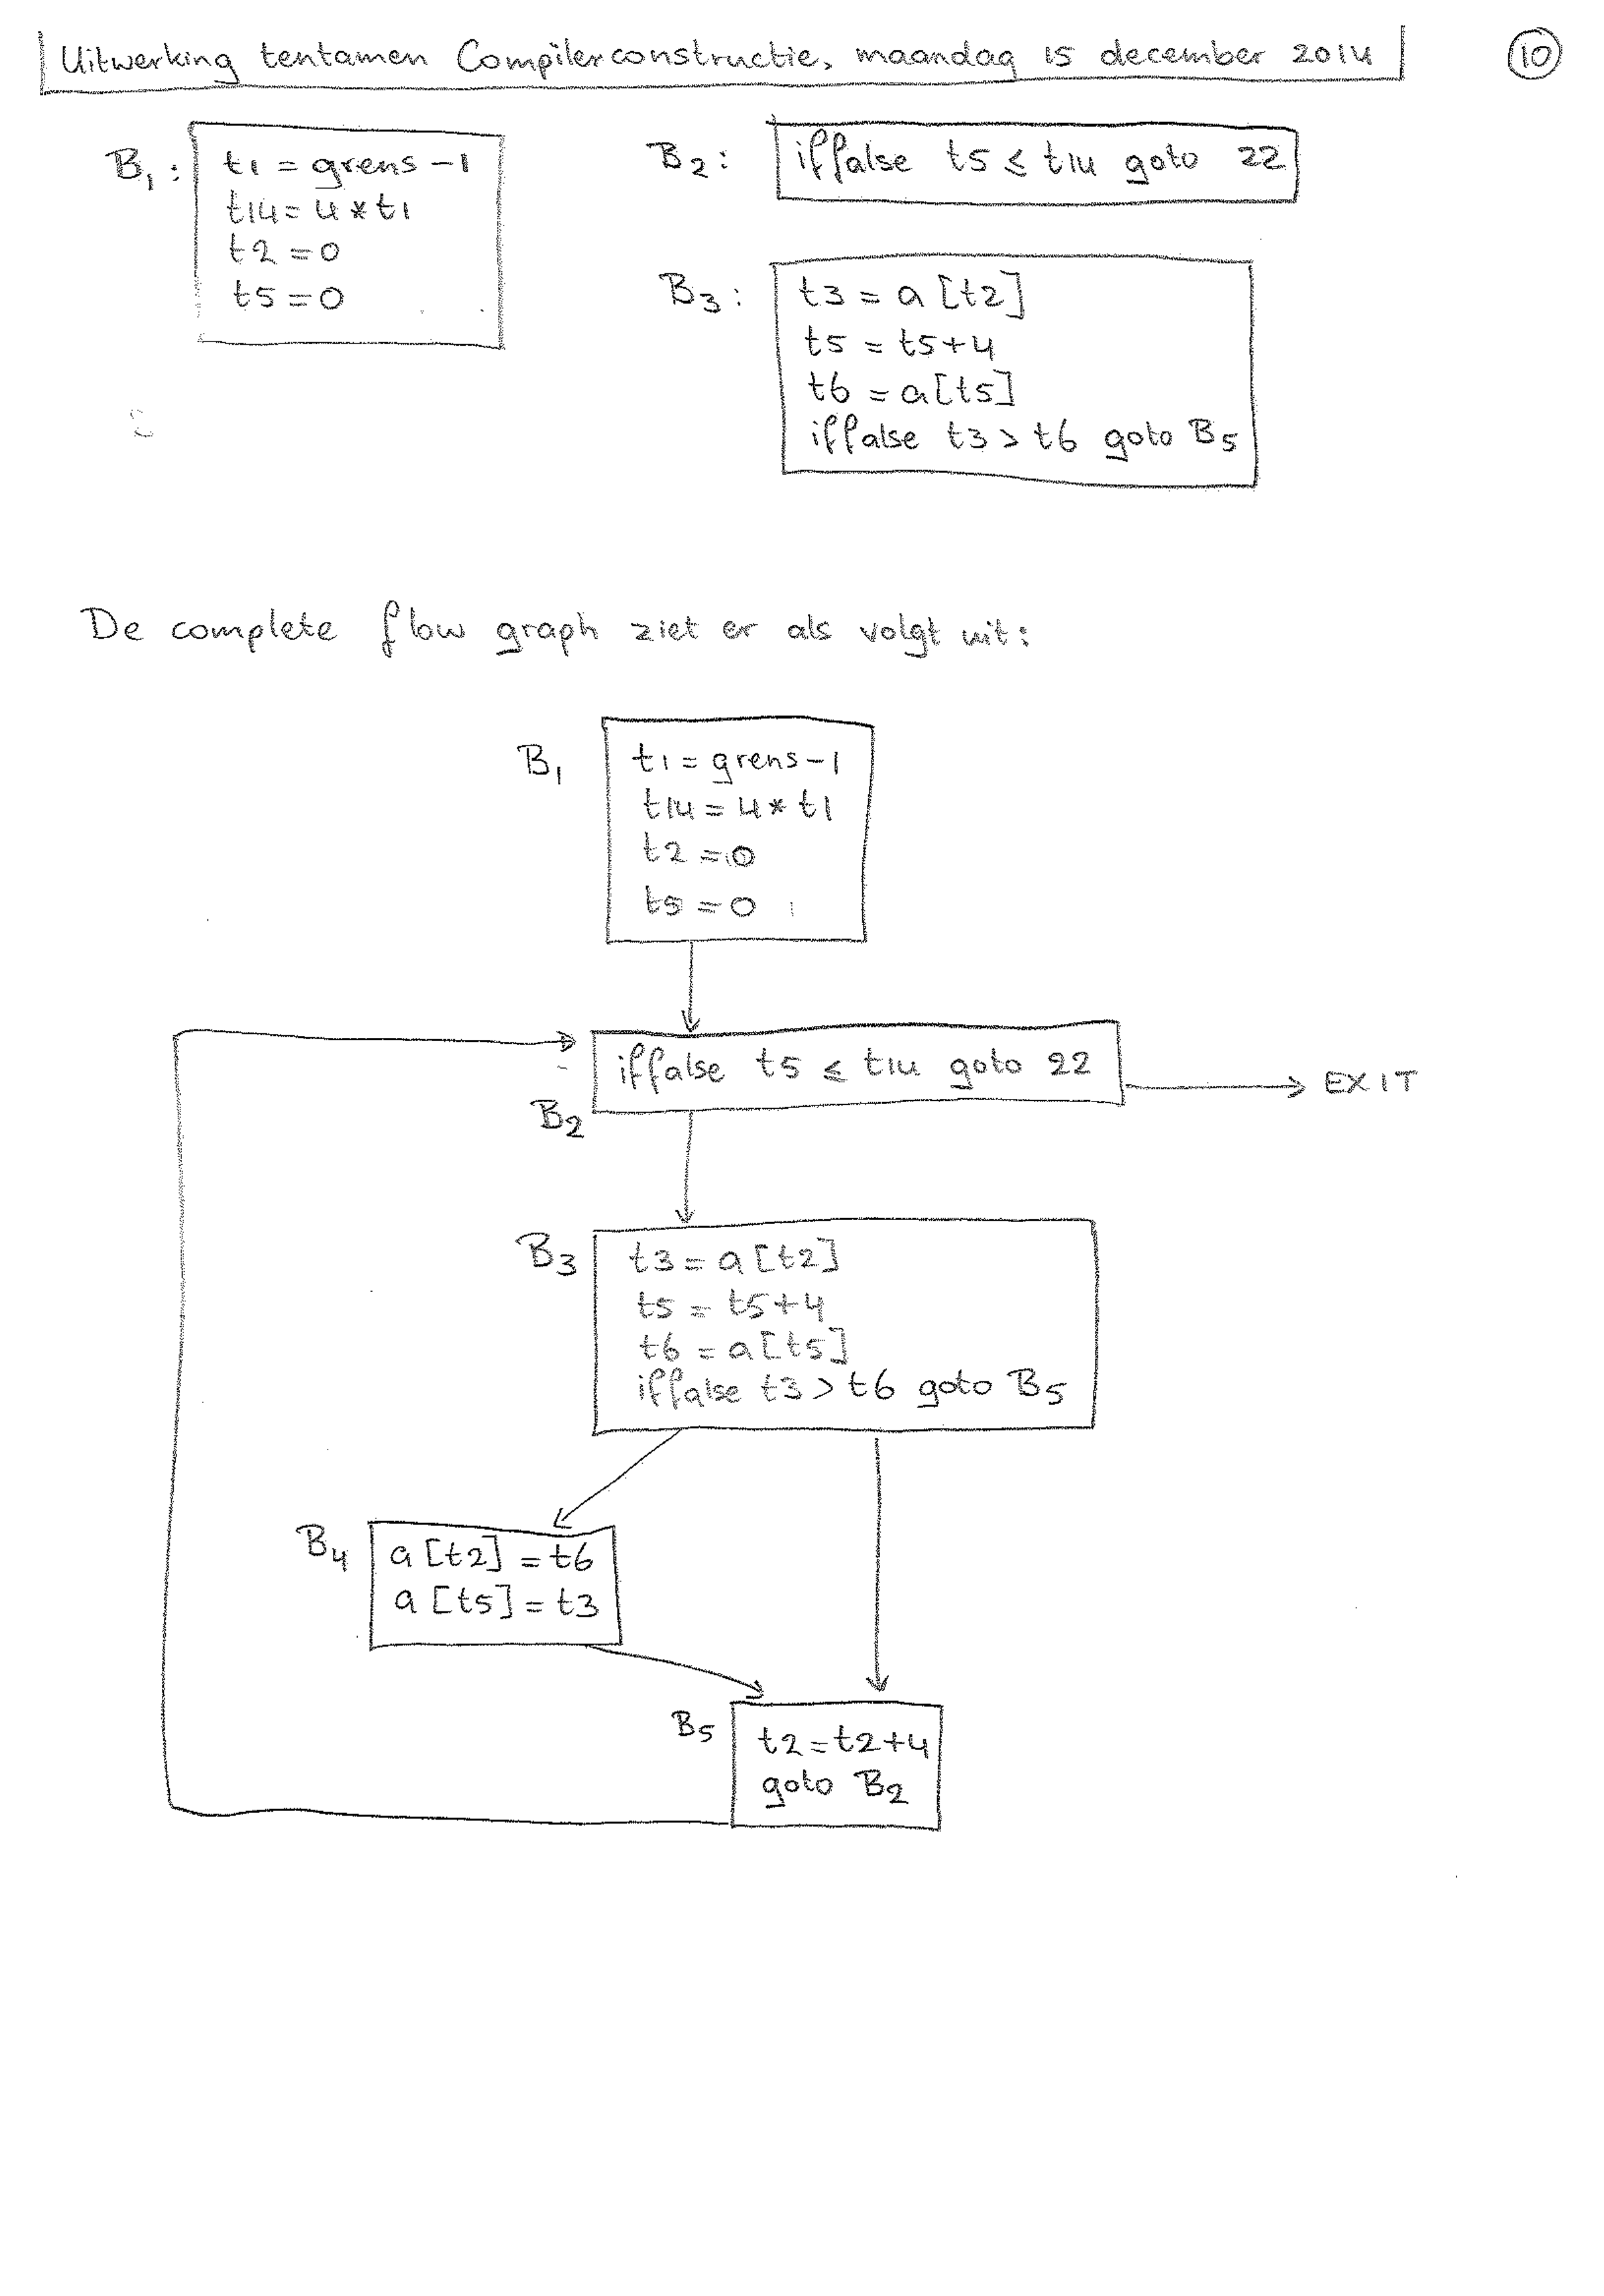 Uitwerking tentamen Compilerconstructie, maandag 15 december 2014
10
B1:
t1 = grens -1
t14 = 4 * t1
t2 = 0
t5 = 0
B2:
iffalse t5 ≤ t14 goto 22
B3:
t3 = a [t2]
t5 = t5+4
t6 = a[t5]
iffalse t3 > t6 goto B5
De complete flow graph ziet er als volgt uit:
B1
t1 = grens -1
t14 = 4 * t1
t2 = 0
t5 = 0
iffalse t5 ≤ t14 goto 22
EXIT
B2
B3
t3 = a [t2]
t5 = t5+4
t6 = a[t5]
iffalse t3 > t6 goto B5
B4
a [t2] = t6
a [t5] = t3
B5
t2 = t2+4
goto B2